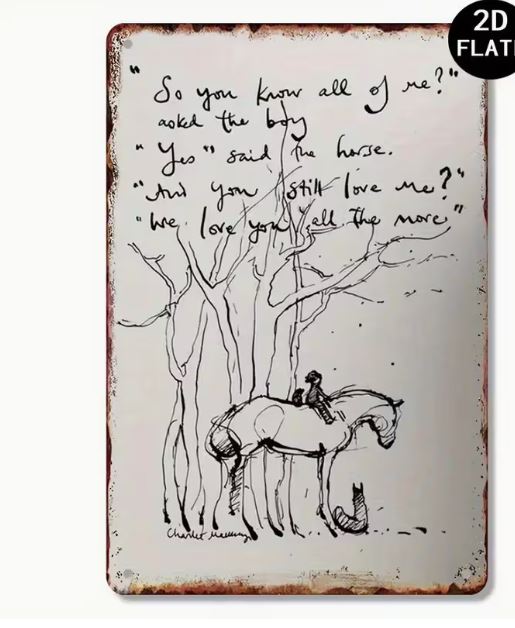 2D
FLAT
" So you know all of me?"
asked the boy
" Yes" said the horse.
"And you still love me?"
"We love you all the more"